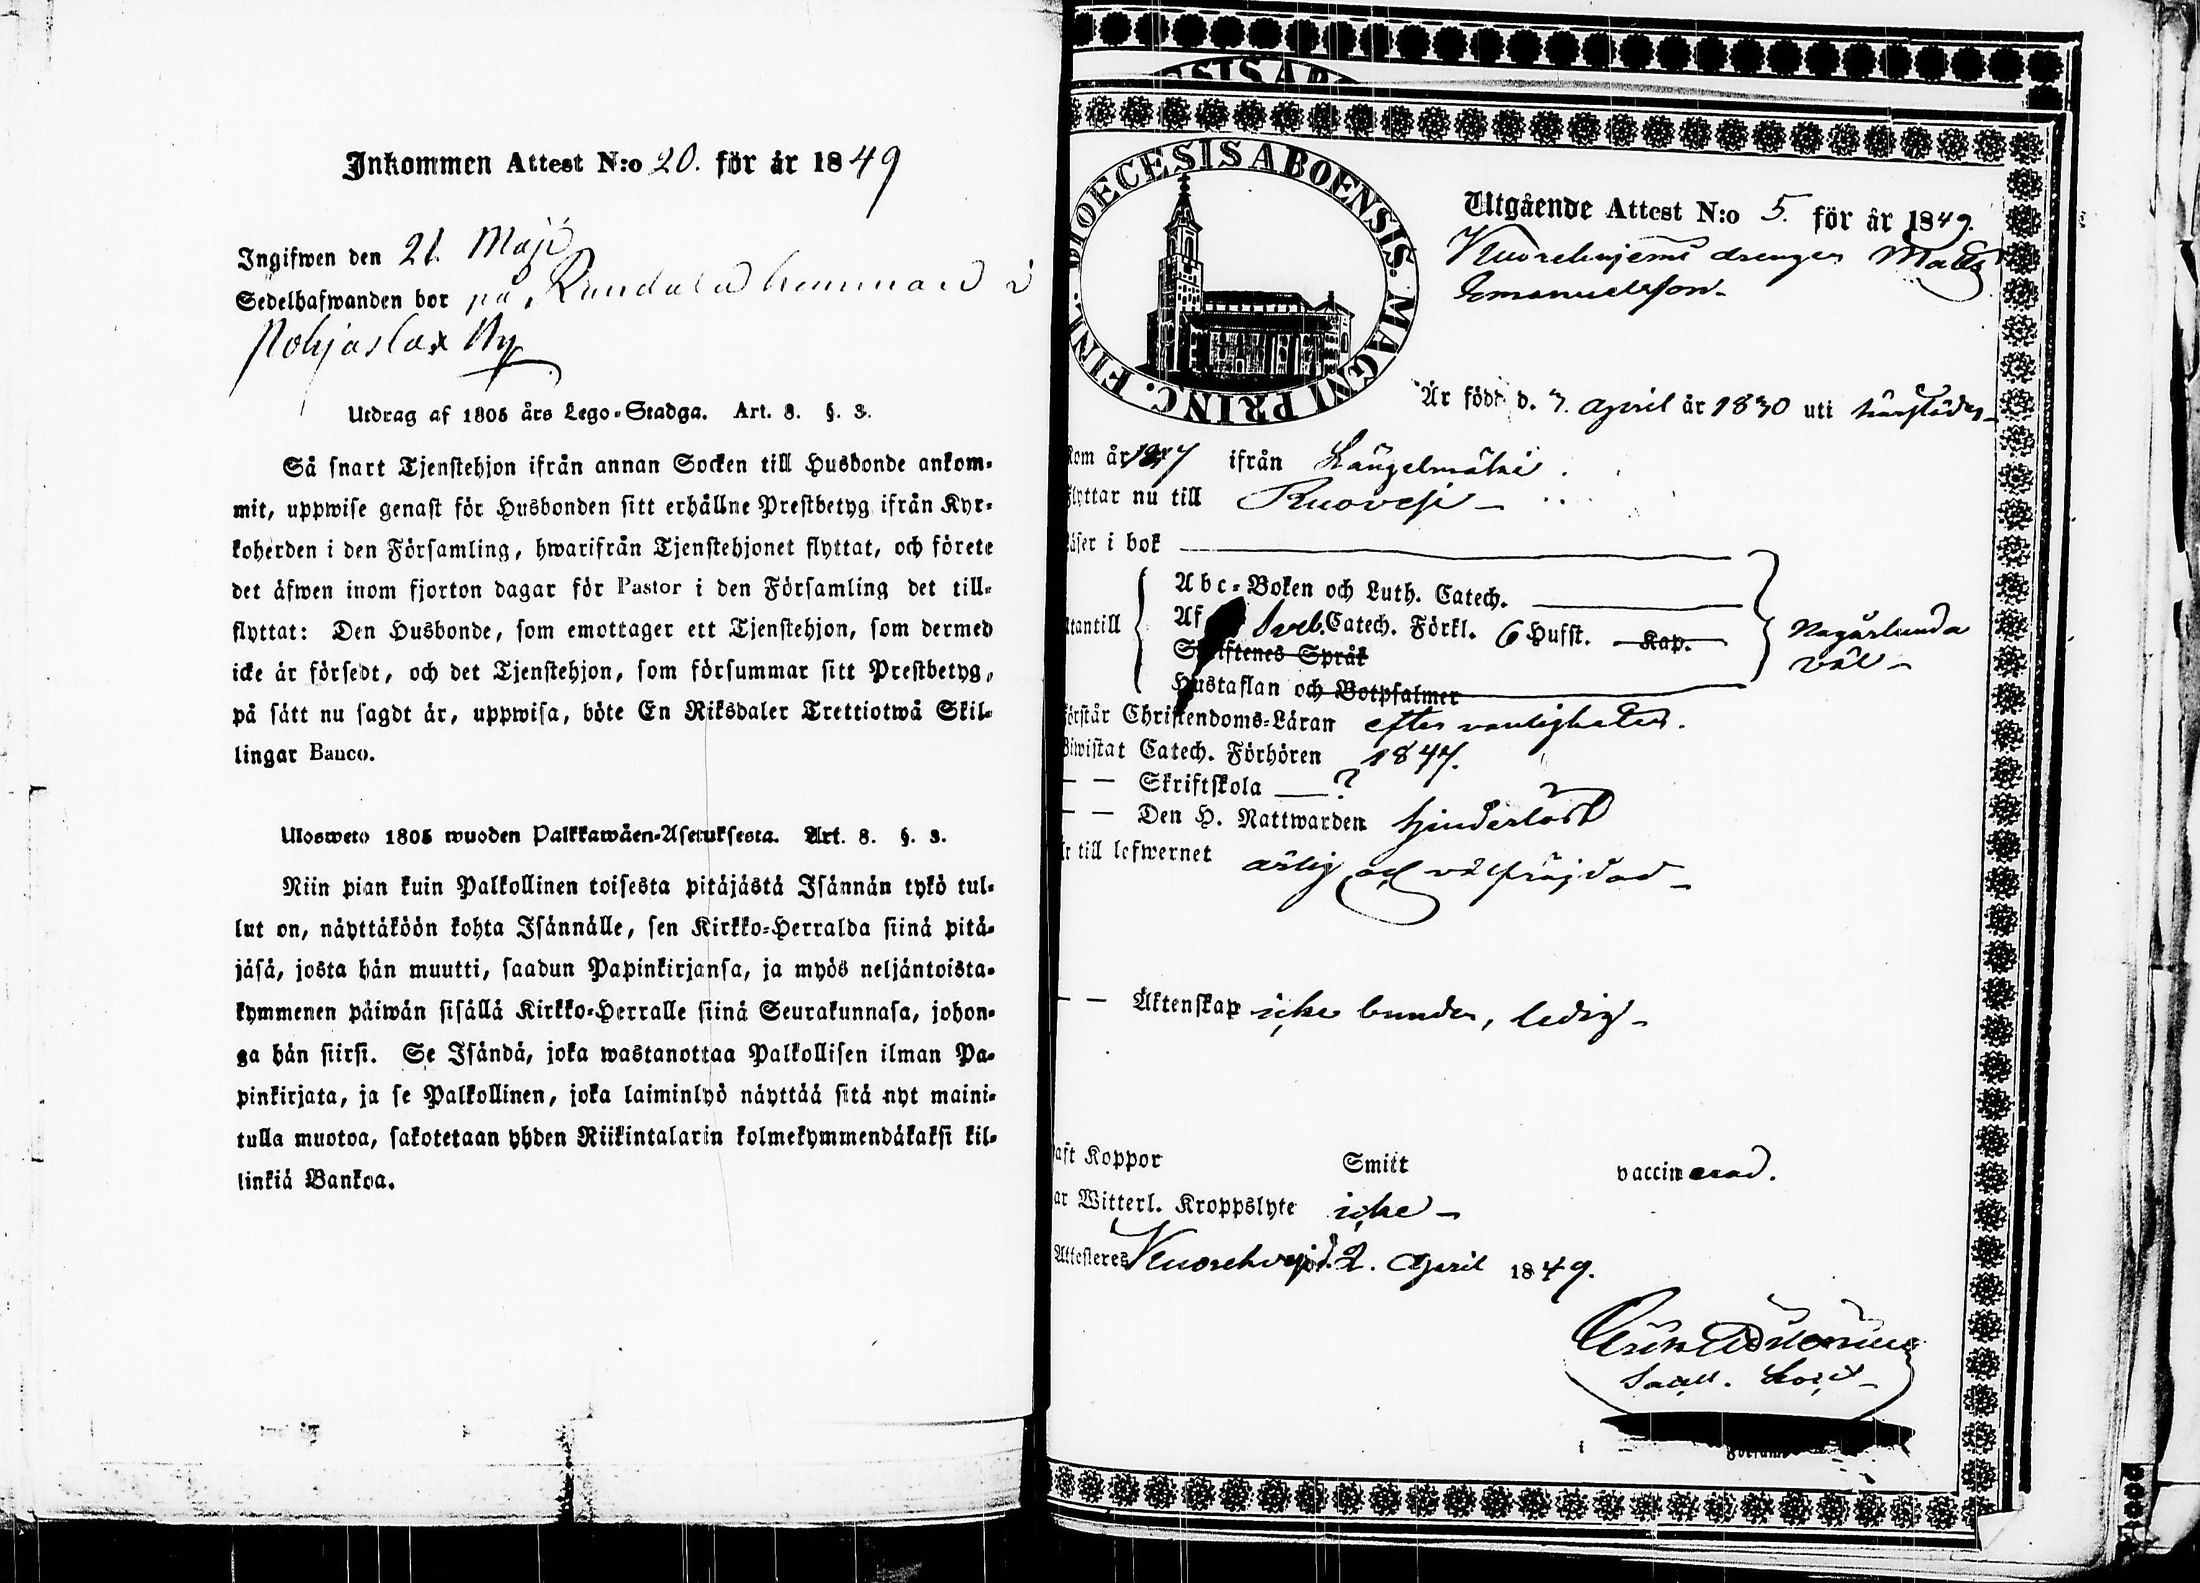 Inkommen Attest N:o 20. för år 1849
Ingifwen den 21. Maji
Sedelhafwanden bor på Rundala hemman i
Pohjaslax By
Utdrag af 1805 års Lego-Stadga. Art. 8. §. 3.
Så snart Tjenstehjon ifrån annan Socken till Husbonde ankom-
mit, uppwise genast för Husbonden sitt erhållne Prestbetyg ifrån Kyr-
koherden i den Församling, hwarifrån Tjenstehjonet flyttat, och förete
det äfwen inom fjorton dagar för Pastor i den Församling det till-
flyttat: Den Husbonde, som emottager ett Tjenstehjon, som dermed
icke är försedt, och det Tjenstehjon, som försummar sitt Prestbetyg,
på sätt nu sagdt är, uppwisa, böte En Riksdaler Trettiotwå Skil-
lingar Banco.
Ulosweto 1805 wuoden Palkkawäen-Asetuksesta. Art. 8. §. 3.
Niin pian kuin Palkollinen toisesta pitäjästä Isännän tykö tul-
lut on, näyttäköön kohta Isännälle, sen Kirkko-Herralda siinä pitä-
jäsä, josta hän muutti, saadun Papinkirjansa, ja myös neljäntoista-
kymmenen päiwän sisällä Kirkko-Herralle siinä Seurakunnasa, johon-
ga hän siirsi. Se Isändä, joka wastanottaa Palkollisen ilman Pa-
pinkirjata, ja se Palkollinen, joka laiminlyö näyttää sitä nyt maini-
tulla muotoa, sakotetaan yhden Riikintalarin kolmekymmendäkaksi kil-
linkiä Bankoa.
DIOECESIS ABOENSIS. MAGNI PRINC. FINL.
Utgående Attest N:o 5. för år 1849.
Kuorehvjemi drengen Matts
Emanuelsson
Är född d. 7. April år 1830 uti härstädes
kom år 1847 ifrån Längelmäki
flyttar nu till Ruovesi
läser i bok
Abc-Boken och Luth. Catech.
utantill Af Sveb. Catech. Förkl. 6 Hufst. Kap. Någorlunda
Skriftenes Språk väl
Hustaflan och Botpsalmer
förstår Christendoms-Läran efter vanligheten.
Biwistat Catech. Förhören 1847.
— — Skriftskola — ?
— — Den H. Nattwarden hinderlöst
är till lefwernet ärlig och välfräjdad
— — Äktenskap icke bunden, ledig
haft Koppor Smitt vaccinerad.
har Witterl. Kroppslyte icke
Attesteres Kuorehvesi d. 2. April 1849.
Sacell.
i Församl